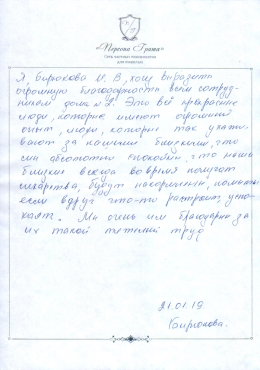 «Персона Грата»
Сеть частных пансионатов
для пожилых
Я, Бирюкова И. В, хочу выразить
огромную благодарность всем сотруд-
никам дома №8. Это всё прекрасные
люди, которые имеют огромный
опыт, люди, которые так ухажи-
вают за нашими близкими, что
мы абсолютно спокойны, что наши
близкие всегда вовремя получат
лекарства, будут накормлены, помыты
если вдруг что-то растроит, успо-
коят. Мы очень им благодарны за
их такой тяжелый труд
21.01.19
Бирюкова.